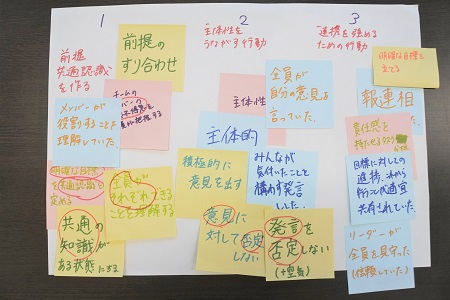 1
前提
共通認識
を作る
前提の
すり合わせ
メンバーが
役割することよ
理解していた。
チームの
明確な目標
を共通認識を
定める
全員が
それぞれできる
ことを理解する
共通の
知識が
ある状態にする
2
主体性を
うながす行動
全員が
自分の意見を
言っていた。
主体性
主体的
積極的に
意見を出す
みんなが
気付いたことを
構わず発言
した。
意見に
対して否定
しない
発言を
否定しない
(空気)
3
連携を強める
ための行動
明確な目標を
立てる
報連相
責任感を
持たせる
目標に対しての
進捗、これから
行うことを適宜
共有されていた。
リーダーが
全員を見守った
(信頼していた)